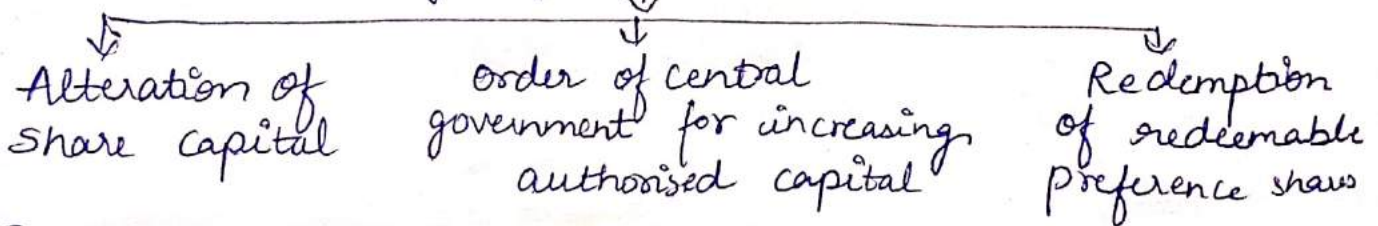 Alteration of
share capital
order of central
government for increasing
authorised capital
Redemption
of redeemable
preference shares